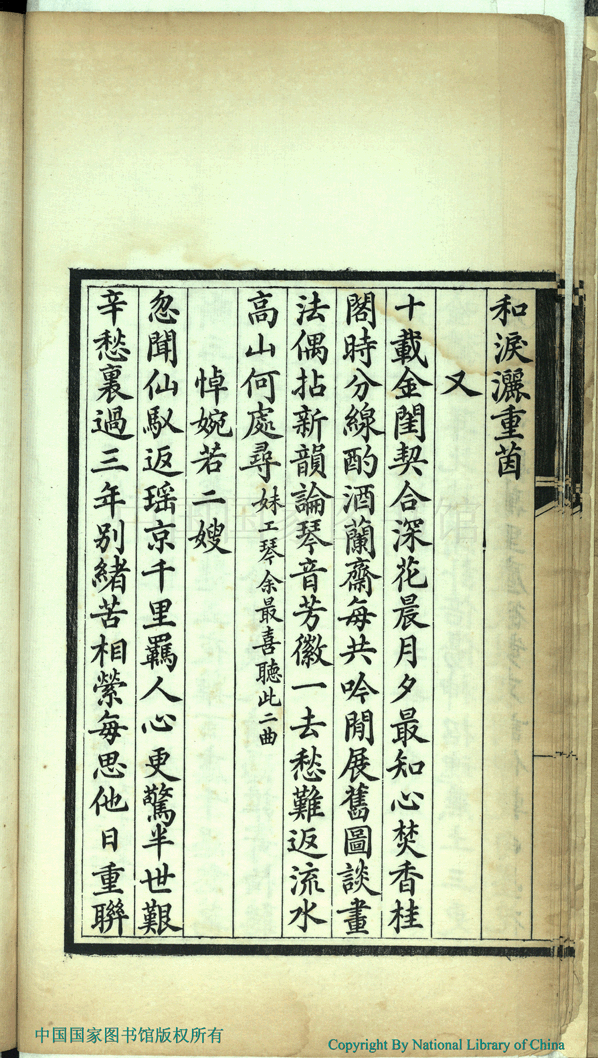 和淚灑重茵
又
十載金閨契合深花晨月夕最知心焚香桂
閣時分線酌酒蘭齋每共吟閒展舊圖談畫
法偶拈新韻論琴音芳徽一去愁難返流水
高山何處尋妹工琴余最喜聽此二曲
悼婉若二嫂
忽聞仙馭返瑶京千里羈人心更驚半世艱
辛愁裏過三年別緒苦相縈每思他日重聯
中国国家图书馆版权所有
Copyright By National Library of China